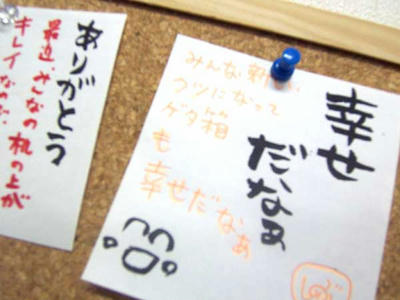 ありがとう
最近みんなの机の上が
キレイなの
幸せ
だなぁ
みんな新しい
クツになって
ゲタ箱
も
幸せだなぁ